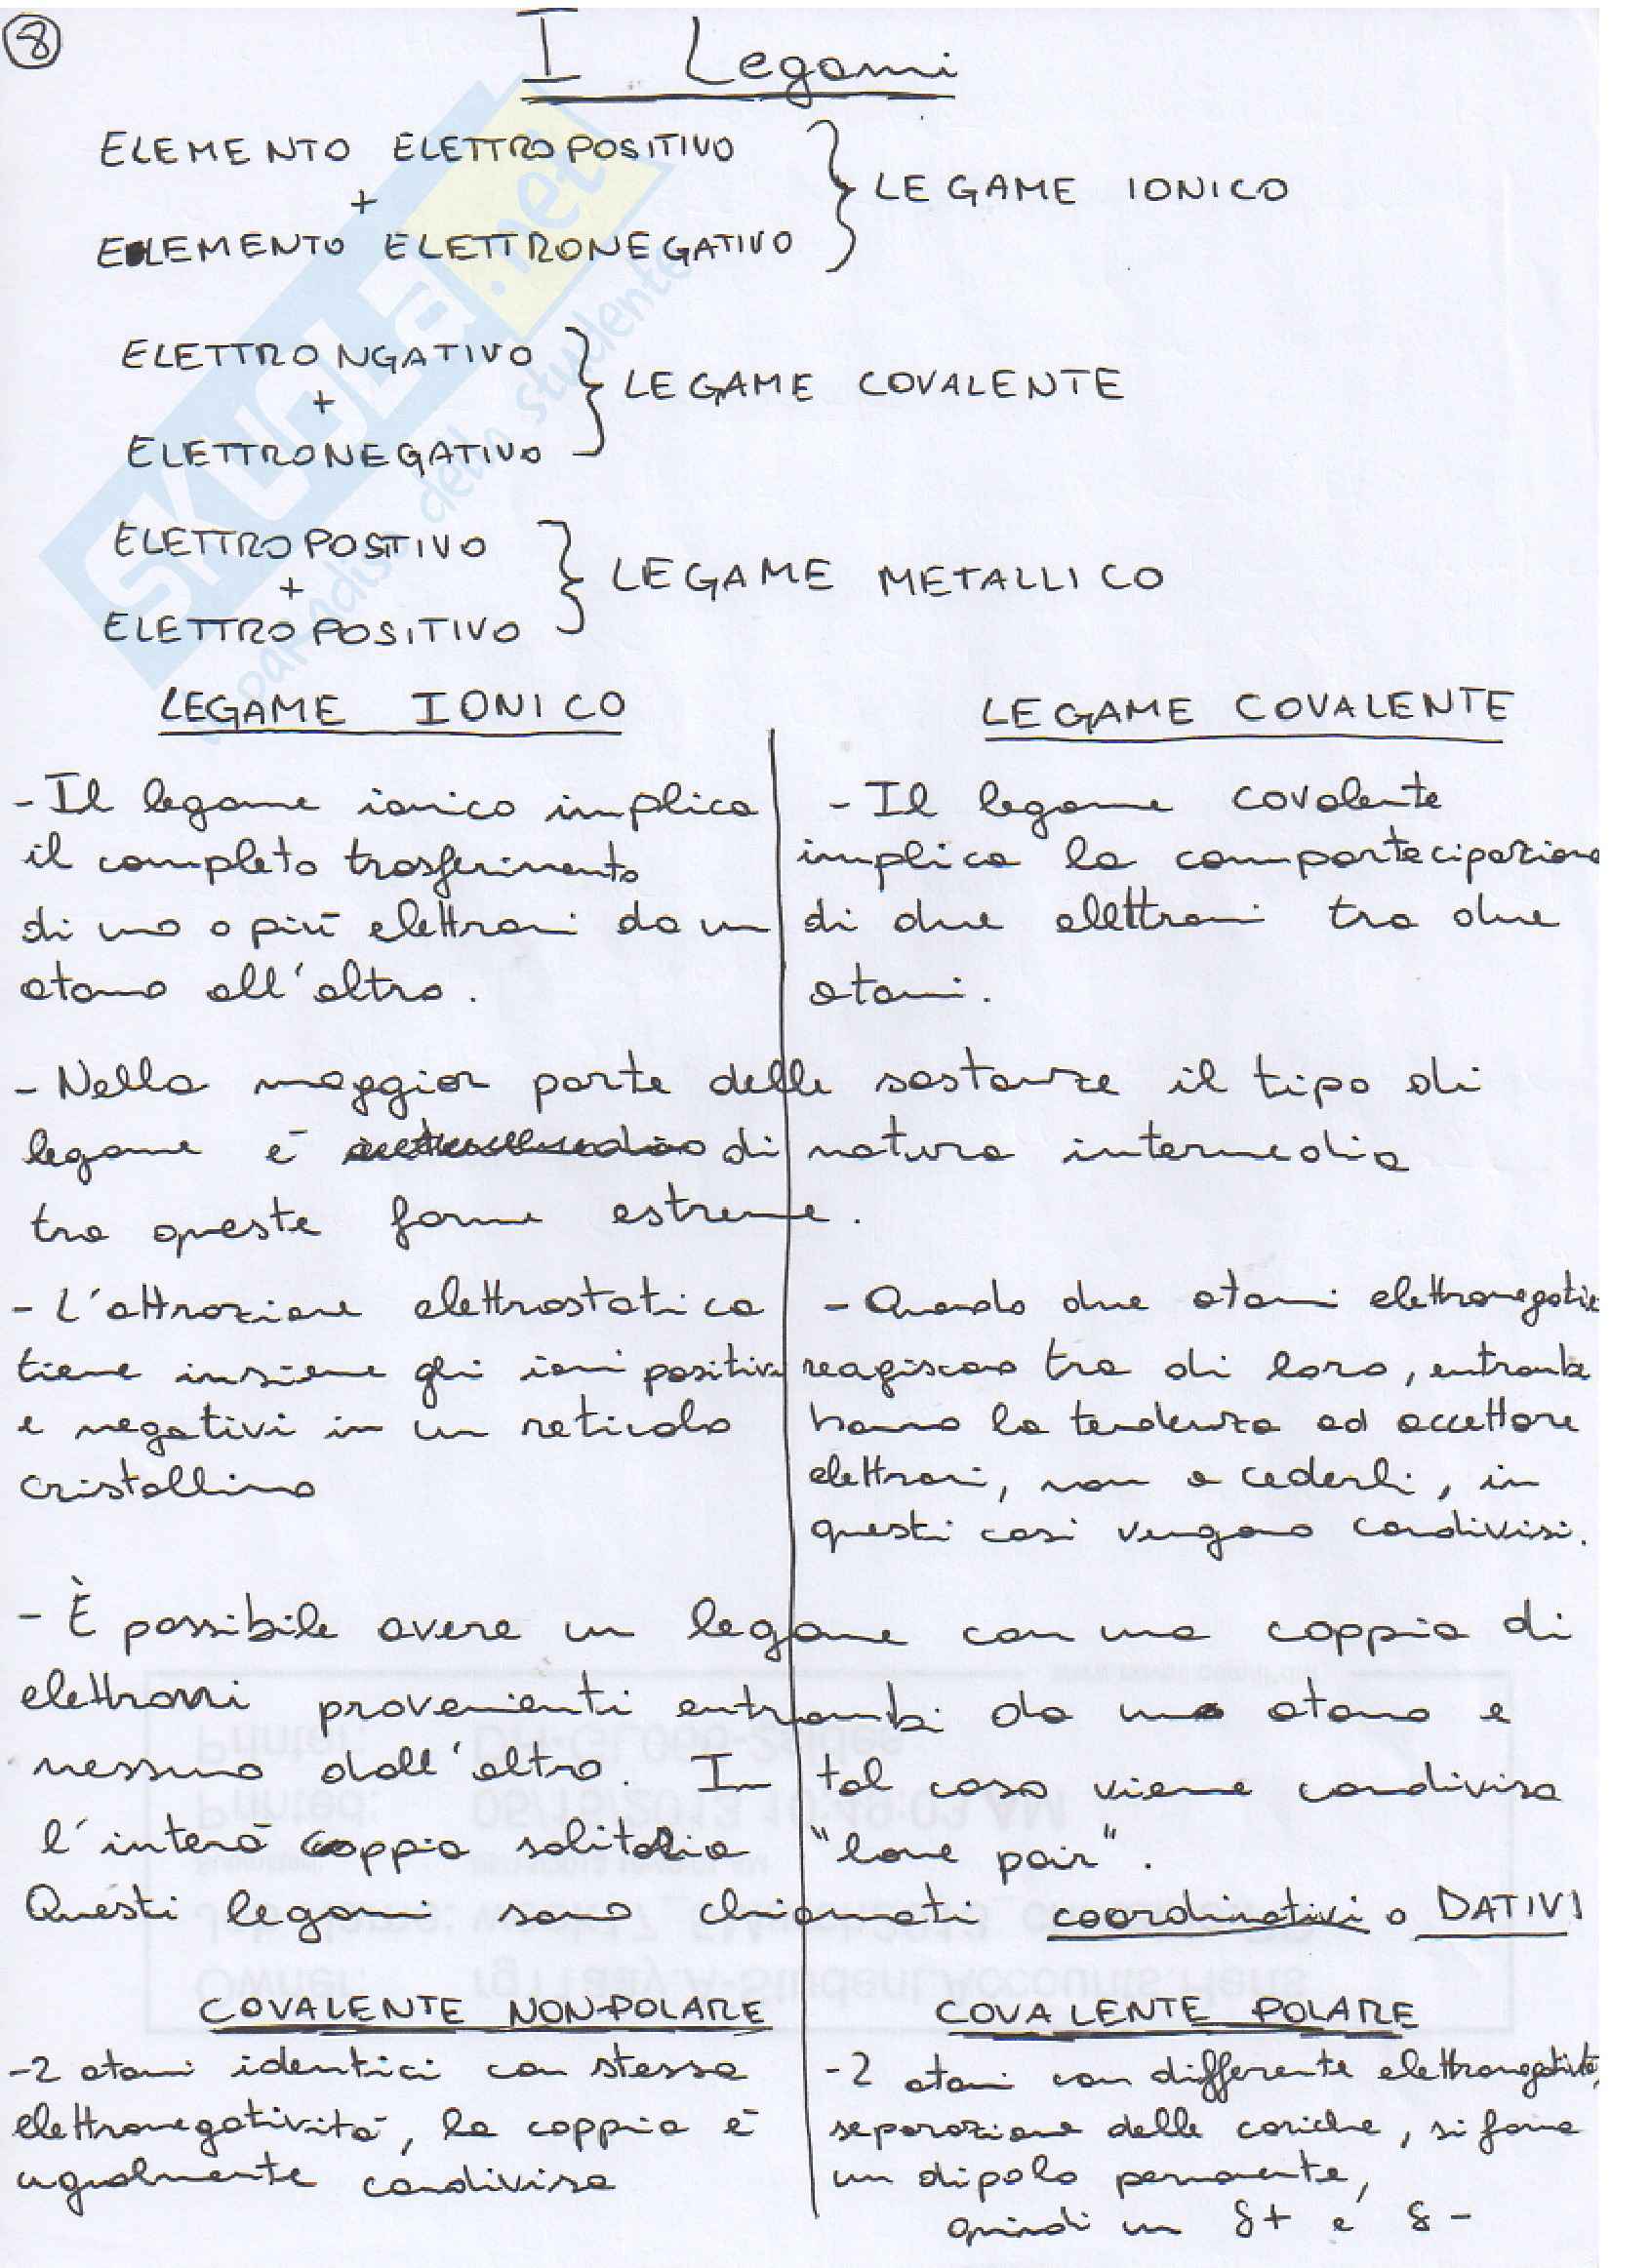 8
I Legami
ELEMENTO ELETTROPOSITIVO
+
ELEMENTO ELETTRONEGATIVO
LEGAME IONICO
ELETTRONGATIVO
+
ELETTRONEGATIVO
LEGAME COVALENTE
ELETTROPOSTIVO
+
ELETTROPOSITIVO
LEGAME METALLICO
LEGAME IONICO
- Il legame ionico implica
il completo trasferimento
di uno o più elettroni da un
atomo all'altro.
LEGAME COVALENTE
- Il legame covalente
implica la compartecipazione
di due elettroni tra due
atomi.
- Nella maggior parte delle sostanze il tipo di
legame è di natura intermedia
tra queste forme estreme.
- L'attrazione elettrostatica
tiene insieme gli ioni positivi
e negativi in un reticolo
cristallino
- Quando due atomi elettronegativi
reagiscono tra di loro, entrambe
hanno la tendenza ad accettare
elettroni, non a cederli, in
questi casi vengono condivisi.
- È possibile avere un legame con una coppia di
elettroni provenienti entrambi da uno atomo e
nessuno dall'altro. In tal caso viene condivisa
l'intera coppia solitaria "lone pair".
Questi legami sono chiamati coordinativi o DATIVI
COVALENTE NON POLARE
- 2 atomi identici con stessa
elettronegatività, la coppia è
ugualmente condivisa
COVALENTE POLARE
- 2 atomi con differente elettronegatività,
separazione delle cariche, si forma
un dipolo permanente,
quindi un δ+ e δ-
SKUOLA.net
il paradiso dello studente
Printer:
Printed: 05/15/2013 10:49:03 AM
Owner: